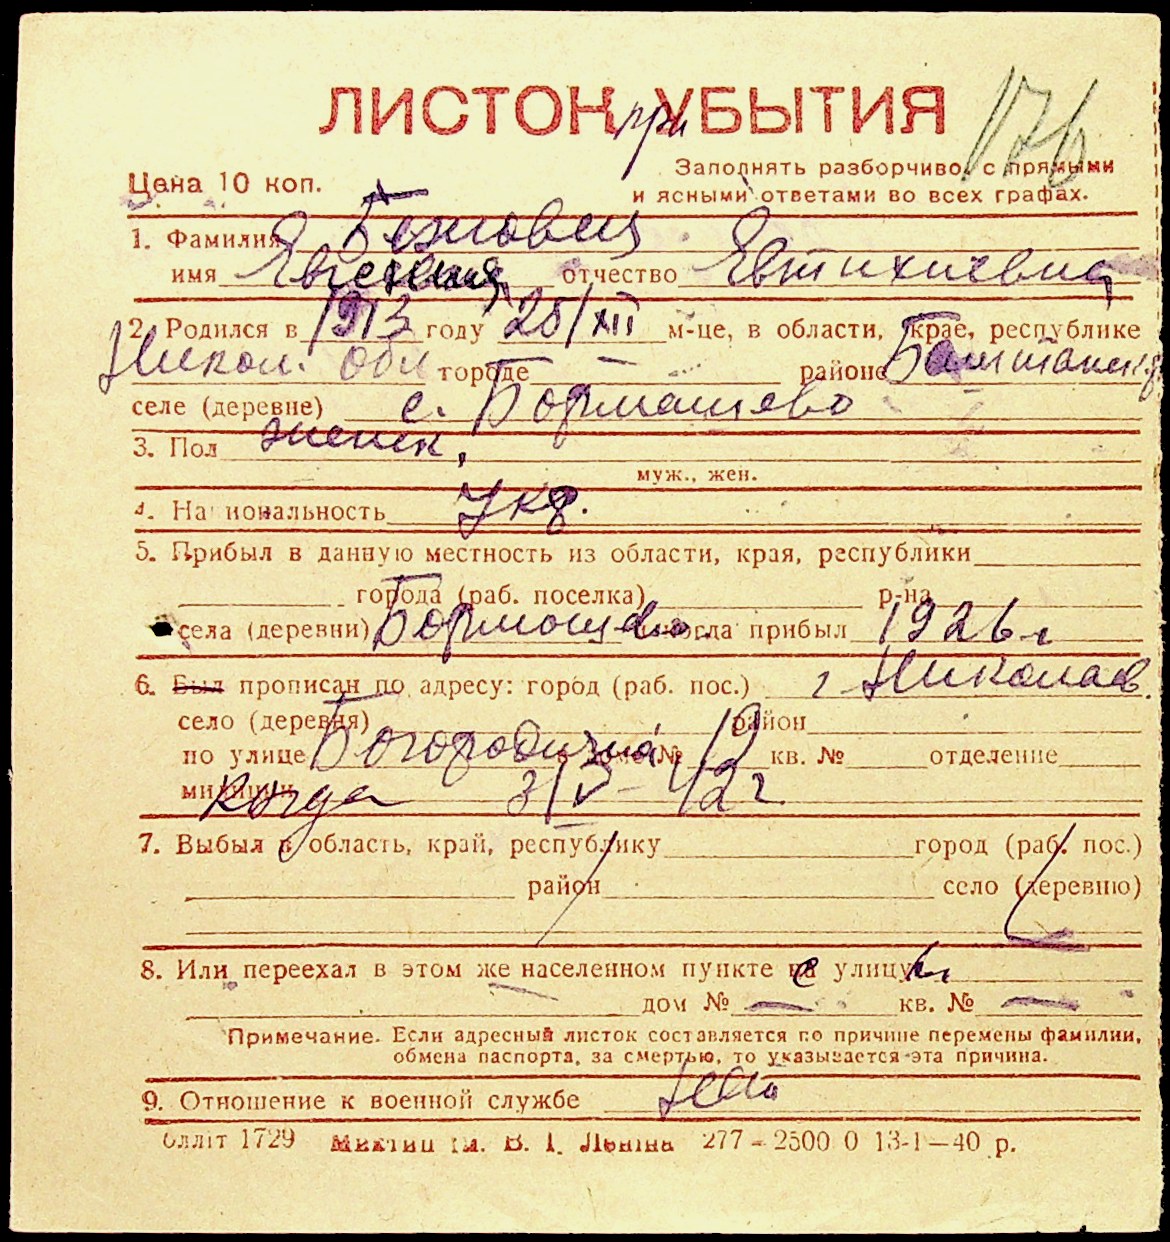 ЛИСТОК при УБЫТИЯ 176
Заполнять разборчиво, с прямыми
Цена 10 коп. и ясными ответами во всех графах.
1. Фамилия
имя Евгения отчество Евтихиевна
2. Родился в 1913 году 25/XII м-це, в области, крае, республике
Никол. обл городе районе
селе (деревне) с.
3. Пол женск,
муж., жен.
4. Национальность Укр.
5. Прибыл в данную местность из области, края, республики
города (раб. поселка) р-на
села (деревни) когда прибыл 1926 г
6. Был прописан по адресу: город (раб. пос.) г Николаев.
село (деревня) район
по улице дом № 19 кв. № отделение
милиции Когда 3/V-42 г
7. Выбыл в область, край, республику город (раб. пос.)
район село (деревню)
8. Или переехал в этом же населенном пункте на улицу
дом № — кв. № —
Примечание. Если адресный листок составляется по причине перемены фамилии,
обмена паспорта, за смертью, то указывается эта причина.
9. Отношение к военной службе
Обліт 1729 В. І. Леніна 277 - 2500 0 13-1—40 р.